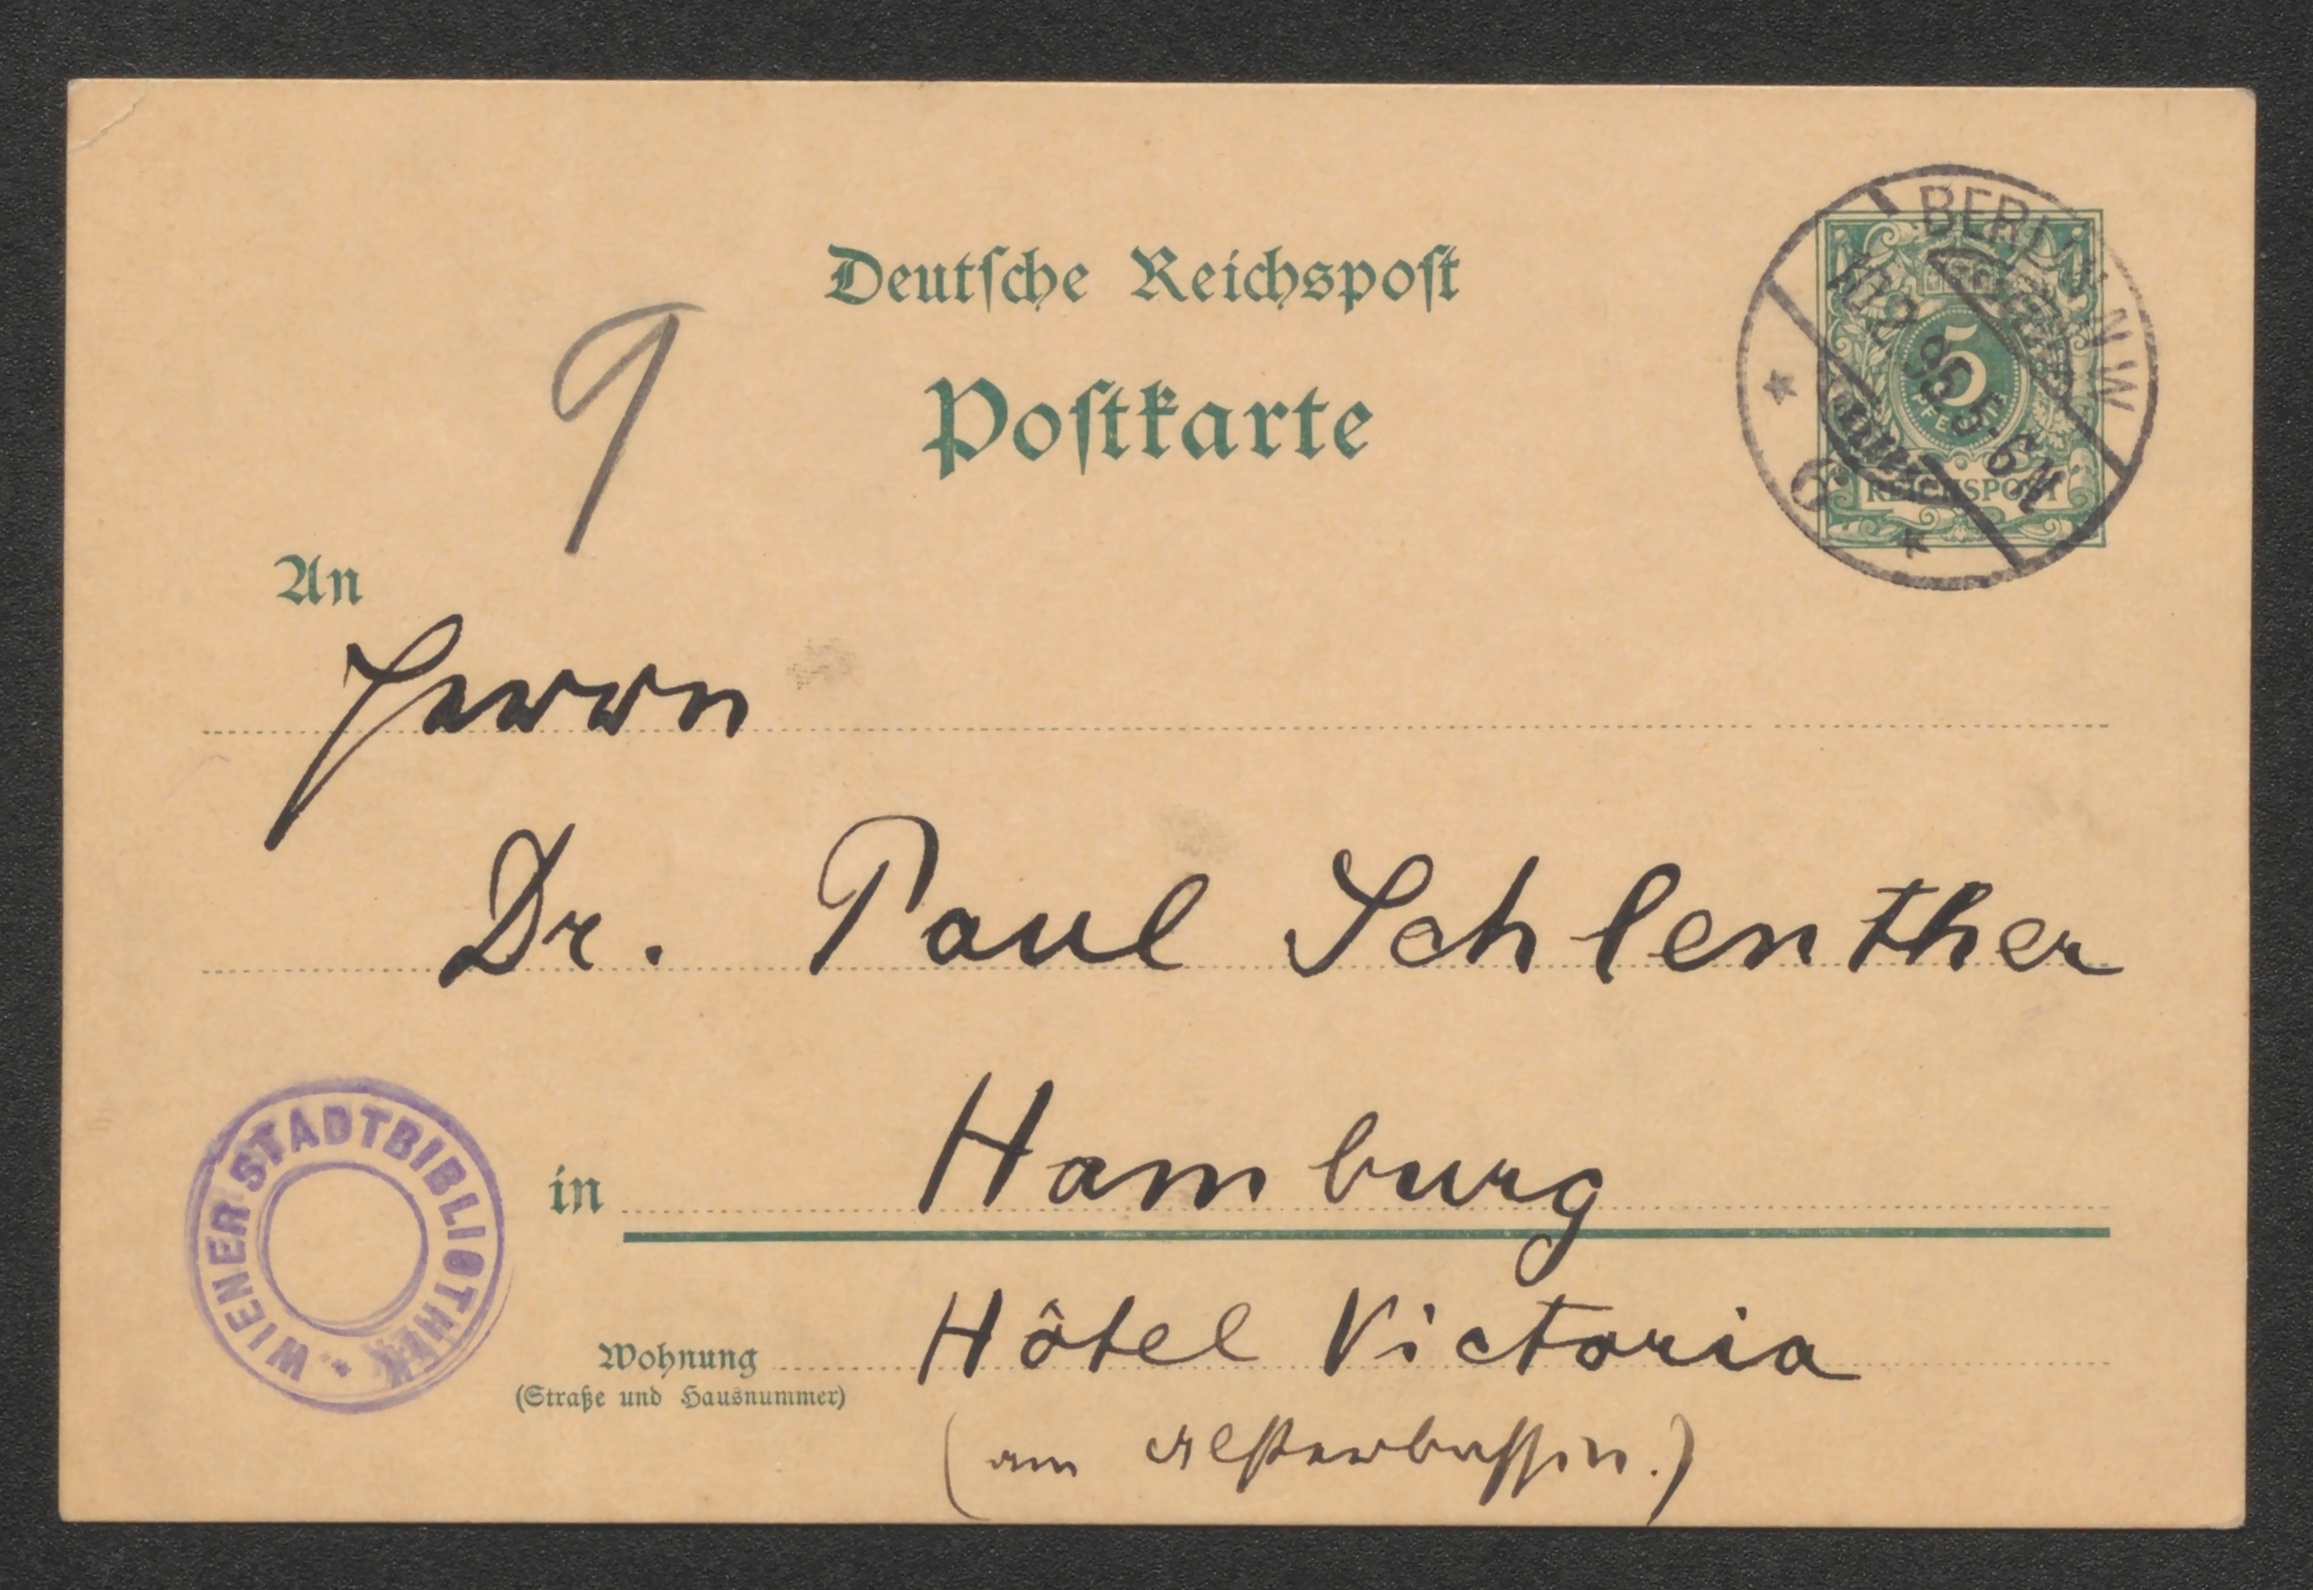 Deutsche Reichspost
Postkarte
BERLIN N.W.
6
5
REICHSPOST
9
An
Herrn
Dr. Paul Schlenther
WIENER STADTBIBLIOTHEK
in Hamburg
Wohnung Hôtel Victoria
(Straße und Hausnummer)
(am Alsterbassin.)